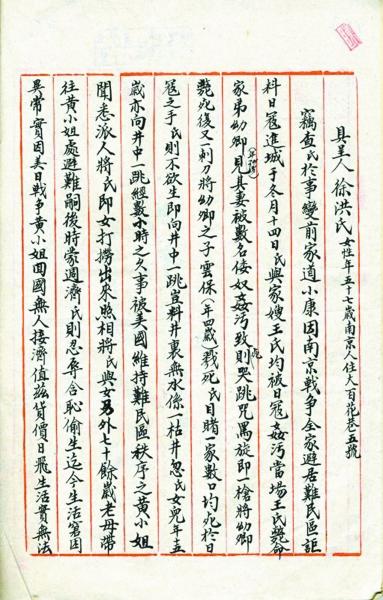 具呈人徐洪氏女性年五十七歲南京人住大百花巷五號
竊查氏於事變前家道小康因南京戰爭全家避居難民區詎
科日寇進城于冬月十四日氏與家嫂王氏均被日寇姦污當場王氏斃命
家弟幼卿見其妻被數名倭奴姦污致死則哭跳咒罵旋即一槍將幼卿
斃死後又一刺刀將幼卿之子雲保(年四歲)戮死氏目睹一家數口均死於日
寇之手氏則不欲生即向井中一跳豈料井裏無水係一枯井忽氏女兒年五
歲亦向井中一跳經數小時之久事被美國維持難民區秩序之黃小姐
聞悉派人將氏即女打撈出來照相將氏與女另外七十餘歲老母帶
往黃小姐處避難嗣後時蒙週濟氏則忍辱含恥偷生迄今生活窘困
異常實因美日戰爭黃小姐回國無人接濟值茲貨價日飛生活實無法